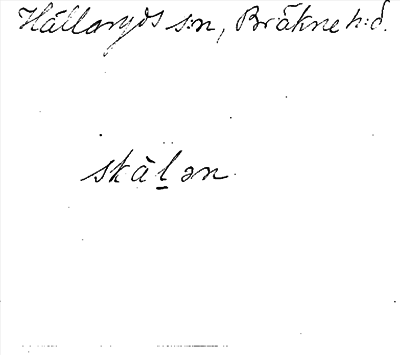 Hällaryds s:n, Bräkne h:d.
skäḻən